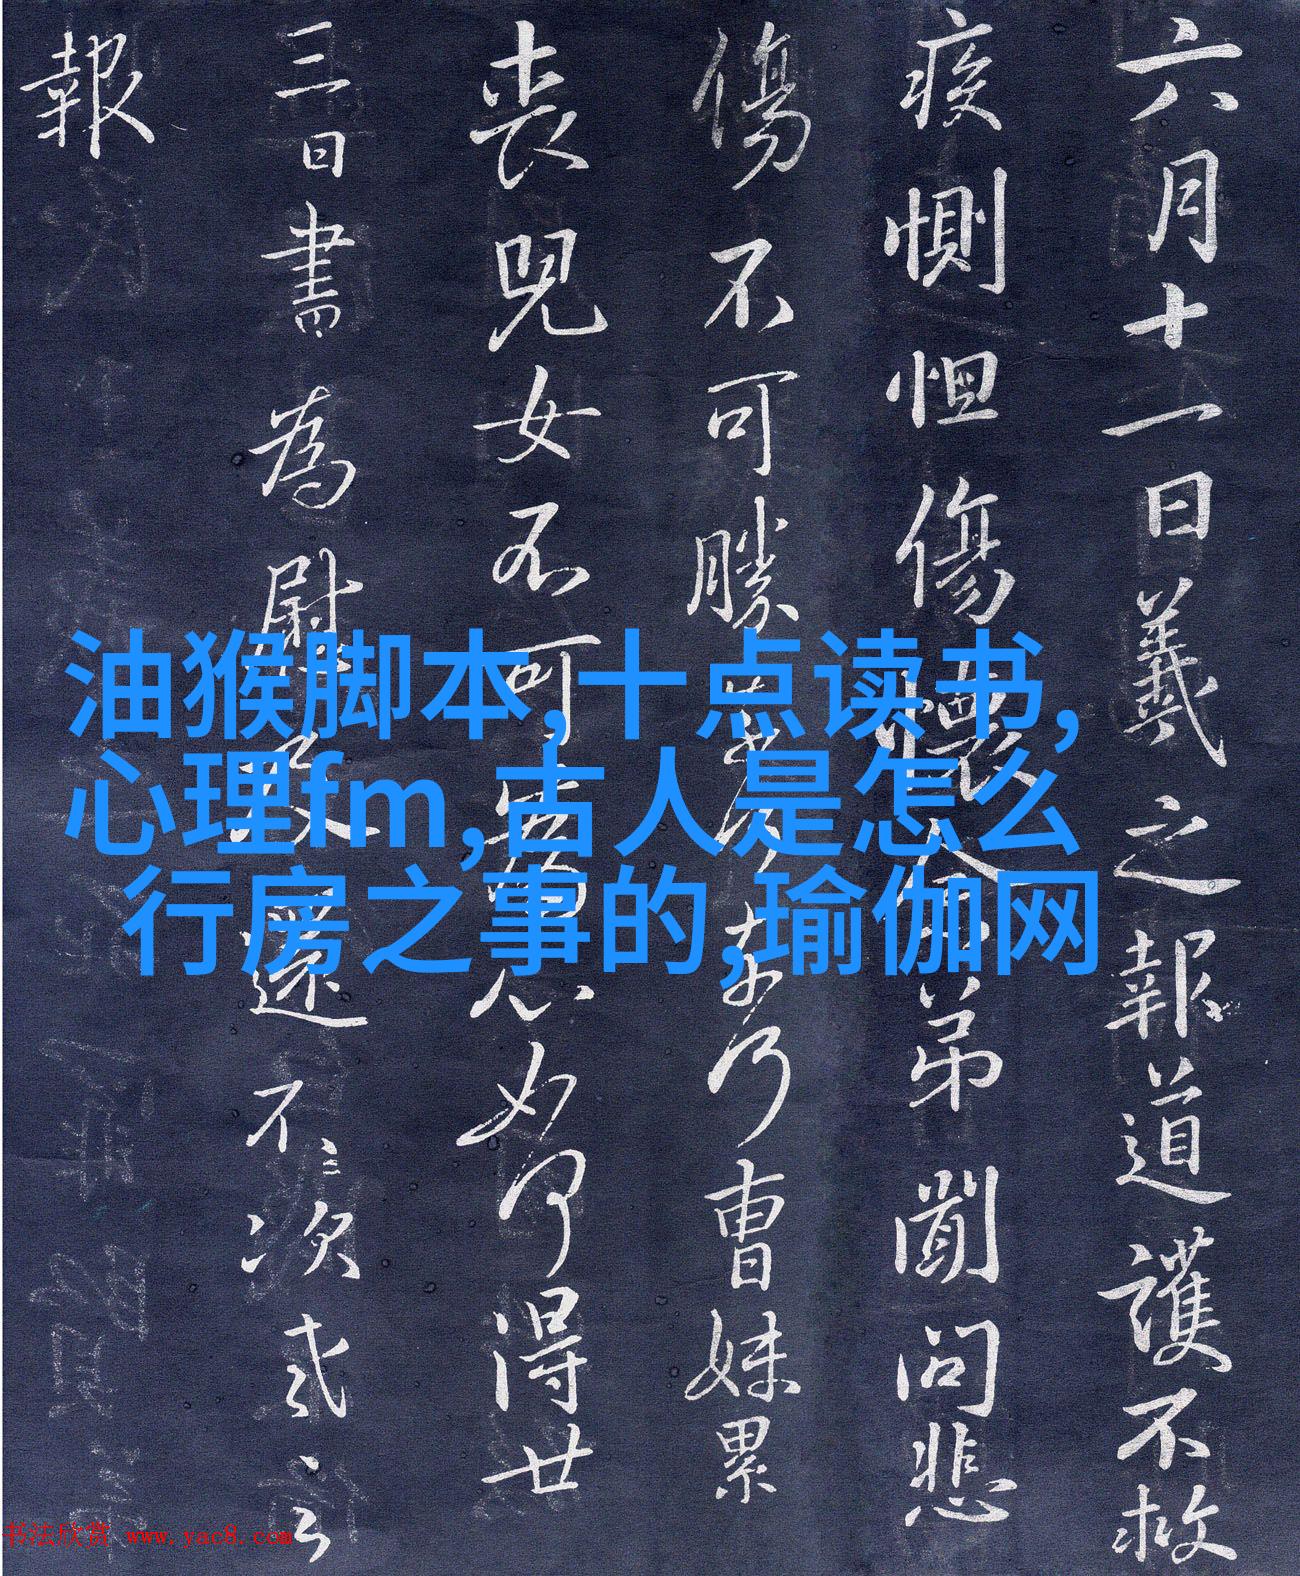 六月十一日羲之報道護不救
疾惻怛傷懷念弟聞問悲
傷不可勝
乃曹妹累
喪兒女不可
心如何得廿
三日書為慰
還不次
報
油猴脚本,十点读书,
心理fm,古人是怎么
行房之事的,瑜伽网
书法欣赏 www.yac8.com